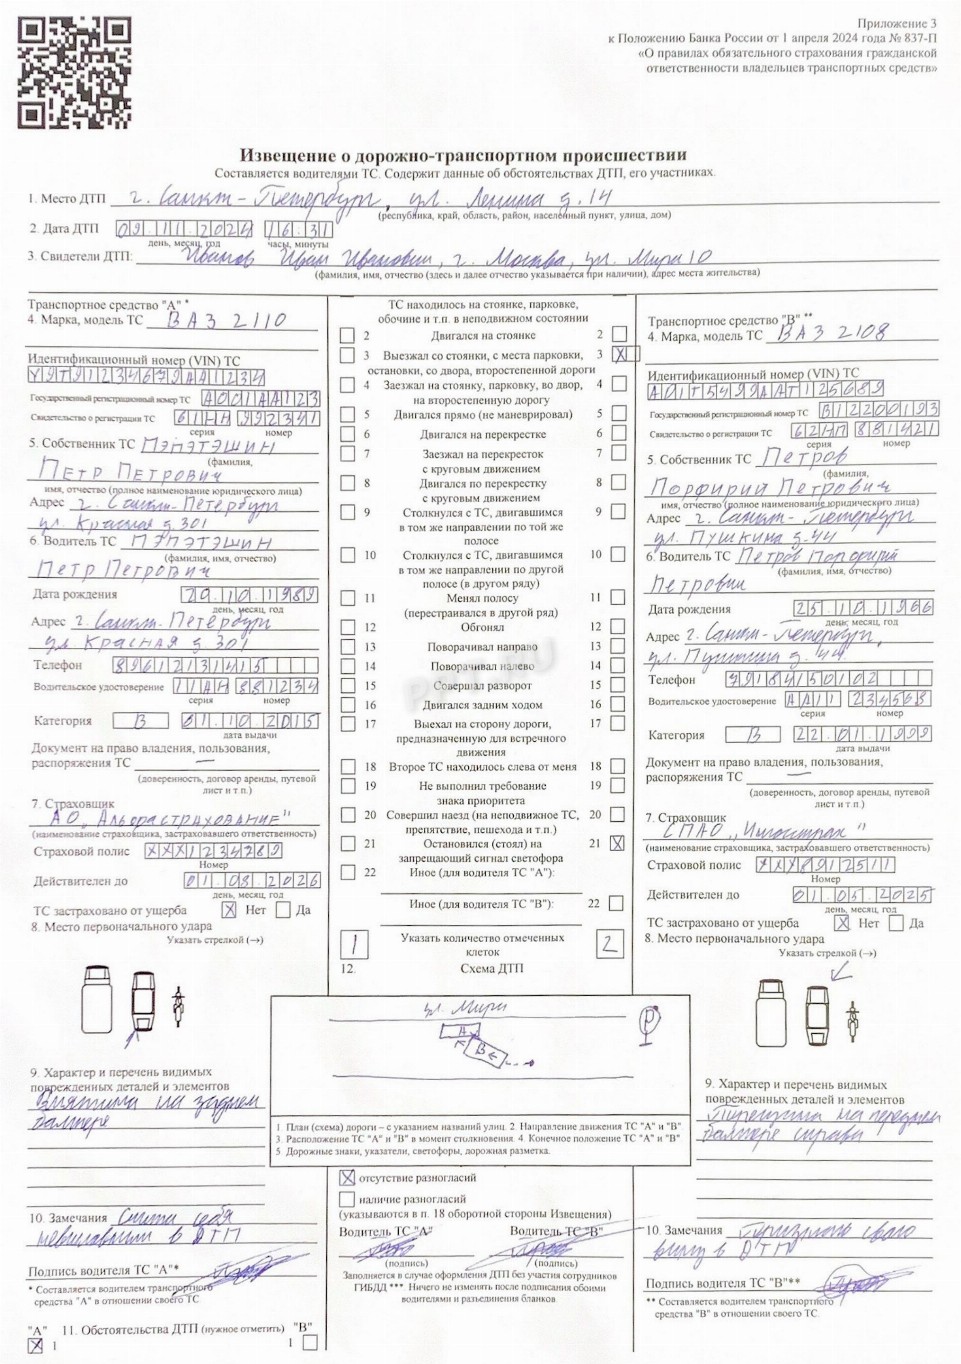 Приложение 3
к Положению Банка России от 1 апреля 2024 года № 837-П
«О правилах обязательного страхования гражданской
ответственности владельцев транспортных средств»
Извещение о дорожно-транспортном происшествии
Составляется водителями ТС. Содержит данные об обстоятельствах ДТП, его участниках.
1. Место ДТП г. Санкт-Петербург, ул. Ленина д. 14
(республика, край, область, район, населённый пункт, улица, дом)
2. Дата ДТП 09.11.2024 16.31
день, месяц, год часы, минуты
3. Свидетели ДТП: Иванов Иван Иванович, г. Москва, ул. Мира 10
(фамилия, имя, отчество (здесь и далее отчество указывается при наличии), адрес места жительства)
Транспортное средство "А" *
4. Марка, модель ТС ВАЗ 2110
Идентификационный номер (VIN) ТС
Y9T91234679AA1234
Государственный регистрационный номер ТС А001АА123
Свидетельство о регистрации ТС 61НН 992341
серия номер
5. Собственник ТС ПЭПЭТЭШИН
(фамилия,
ПЕТР ПЕТРОВИЧ
имя, отчество (полное наименование юридического лица)
Адрес г. Санкт-Петербург
ул. Красная д. 301
6. Водитель ТС ПЭПЭТЭШИН
(фамилия, имя, отчество)
ПЕТР ПЕТРОВИЧ
Дата рождения 20.10.1989
день, месяц, год
Адрес г. Санкт-Петербург
ул. КРАСНАЯ д 301
Телефон 89612131415
Водительское удостоверение 11АН 881234
серия номер
Категория В 01.10.2015
дата выдачи
Документ на право владения, пользования,
распоряжения ТС —
(доверенность, договор аренды, путевой
лист и т.п.)
7. Страховщик
АО "Альфастрахование"
(наименование страховщика, застраховавшего ответственность)
Страховой полис XXX1234789
Номер
Действителен до 01.08.2026
день, месяц, год
ТС застраховано от ущерба X Нет Да
8. Место первоначального удара
Указать стрелкой (→)
9. Характер и перечень видимых
поврежденных деталей и элементов
Вмятина на заднем
бампере
10. Замечания Считаю себя
невиновным в ДТП
Подпись водителя ТС "А"*
* Составляется водителем транспортного
средства "А" в отношении своего ТС
"А" 11. Обстоятельства ДТП (нужное отметить) "В"
X 1 1
ТС находилось на стоянке, парковке,
обочине и т.п. в неподвижном состоянии
2 Двигался на стоянке 2
3 Выезжал со стоянки, с места парковки, 3 X
остановки, со двора, второстепенной дороги
4 Заезжал на стоянку, парковку, во двор, 4
на второстепенную дорогу
5 Двигался прямо (не маневрировал) 5
6 Двигался на перекрестке 6
7 Заезжал на перекресток 7
с круговым движением
8 Двигался по перекрестку 8
с круговым движением
9 Столкнулся с ТС, двигавшимся 9
в том же направлении по той же
полосе
10 Столкнулся с ТС, двигавшимся 10
в том же направлении по другой
полосе (в другом ряду)
11 Менял полосу 11
(перестраивался в другой ряд)
12 Обгонял 12
13 Поворачивал направо 13
14 Поворачивал налево 14
15 Совершал разворот 15
16 Двигался задним ходом 16
17 Выехал на сторону дороги, 17
предназначенную для встречного
движения
18 Второе ТС находилось слева от меня 18
19 Не выполнил требование 19
знака приоритета
20 Совершил наезд (на неподвижное ТС, 20
препятствие, пешехода и т.п.)
21 Остановился (стоял) на 21 X
запрещающий сигнал светофора
22 Иное (для водителя ТС "А"):
Иное (для водителя ТС "В"): 22
1 Указать количество отмеченных 2
клеток
12. Схема ДТП
ул. Мира
А
В
Р
1 План (схема) дороги – с указанием названий улиц 2. Направление движения ТС "А" и "В"
3. Расположение ТС "А" и "В" в момент столкновения. 4. Конечное положение ТС "А" и "В"
5 Дорожные знаки, указатели, светофоры, дорожная разметка.
X отсутствие разногласий
наличие разногласий
(указываются в п. 18 оборотной стороны Извещения)
Водитель ТС "А" Водитель ТС "В"
(подпись) (подпись)
Заполняется в случае оформления ДТП без участия сотрудников
ГИБДД *** Ничего не изменять после подписания обоими
водителями и разъединения бланков.
Транспортное средство "В" **
4. Марка, модель ТС ВАЗ 2108
Идентификационный номер (VIN) ТС
A01T5499AAT125689
Государственный регистрационный номер ТС В12200193
Свидетельство о регистрации ТС 62НП 881421
серия номер
5. Собственник ТС Петров
(фамилия,
Порфирий Петрович
имя, отчество (полное наименование юридического лица)
Адрес г. Санкт-Петербург
ул. Пушкина д. 44
6. Водитель ТС Петров Порфирий
(фамилия, имя, отчество)
Петрович
Дата рождения 25.10.1966
день, месяц, год
Адрес г. Санкт-Петербург,
ул. Пушкина д. 44
Телефон 9918450102
Водительское удостоверение АА11 234568
серия номер
Категория В 22.01.1999
дата выдачи
Документ на право владения, пользования,
распоряжения ТС —
(доверенность, договор аренды, путевой
лист и т.п.)
7. Страховщик
СПАО "Ингосстрах"
(наименование страховщика, застраховавшего ответственность)
Страховой полис XXX8912511
Номер
Действителен до 01.05.2025
день, месяц, год
ТС застраховано от ущерба X Нет Да
8. Место первоначального удара
Указать стрелкой (→)
9. Характер и перечень видимых
поврежденных деталей и элементов
на переднем
бампере справа
10. Замечания Признаю свою
вину в ДТП
Подпись водителя ТС "В"**
** Составляется водителем транспортного
средства "В" в отношении своего ТС
PPT.RU